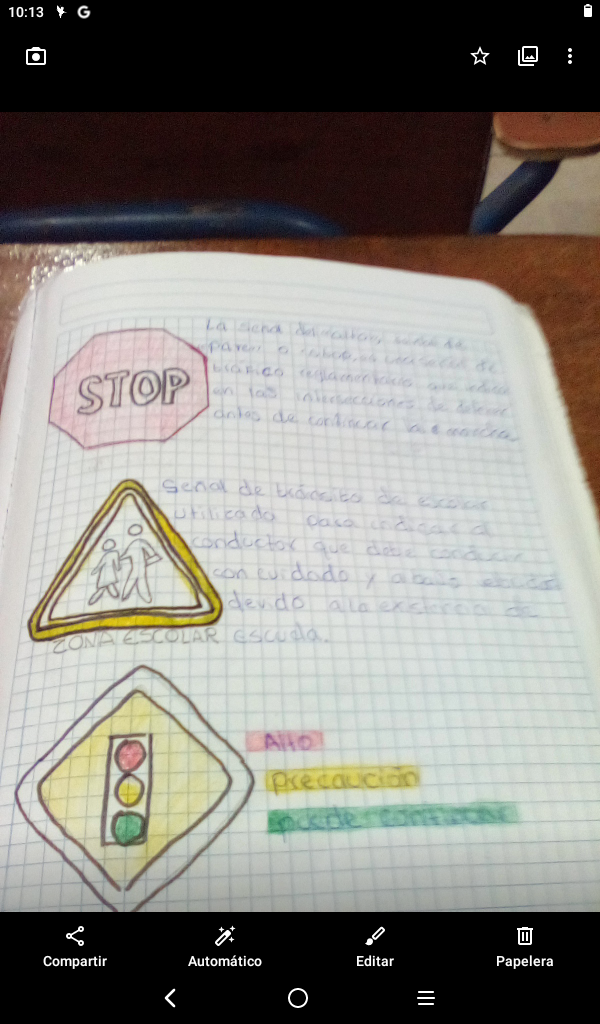 10:13
STOP
La señal de
pare o
tráfico que
en las intersecciones de
antes de continuar la
Señal de tránsito de escolar
utilizado para indicar al
conductor que debe conducir
con cuidado y abaja
dendo a la existencia de
escuela.
ZONA ESCOLAR
Alto
precaución
puede continuar
Compartir
Automático
Editar
Papelera